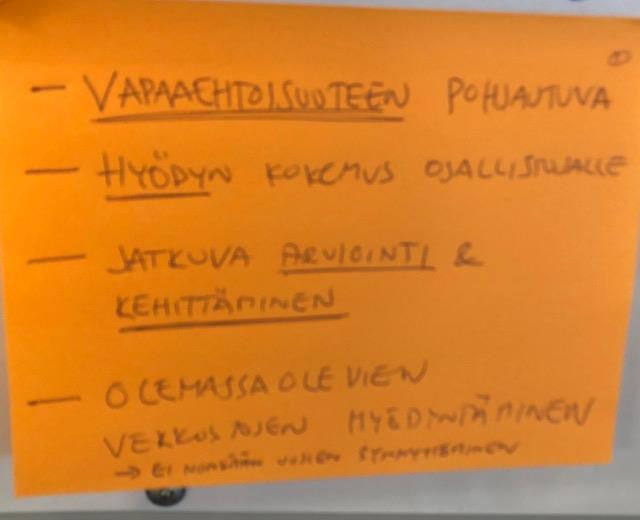 ①
— VAPAAEHTOISUUTEEN POHJAUTUVA
— HYÖDYN KOKEMUS OSALLISTUJALLE
— JATKUVA ARVIOINTI &
KEHITTÄMINEN
— OLEMASSAOLEVIEN
VERKOSTOJEN HYÖDYNTÄMINEN
→ EI UUSIEN SYNNYTTÄMINEN